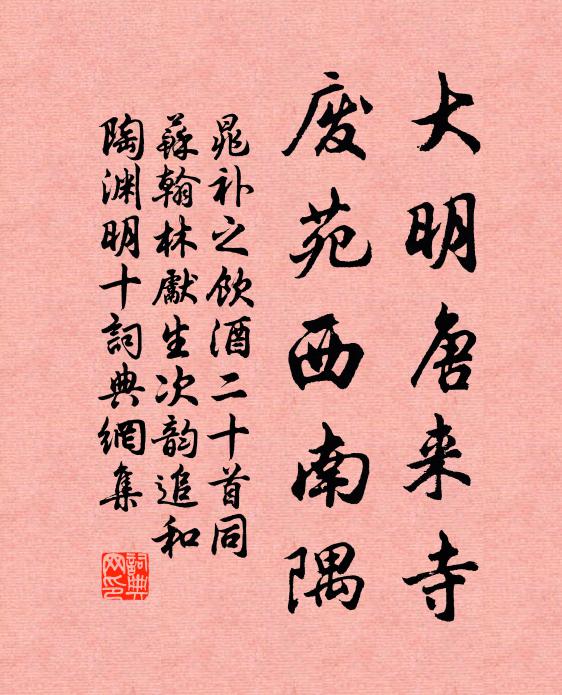 大明唐来寺
废苑西南隅
晁补之饮酒二十首同
蘇翰林獻生次韵追和
陶渊明十詞典網集
詞典网印